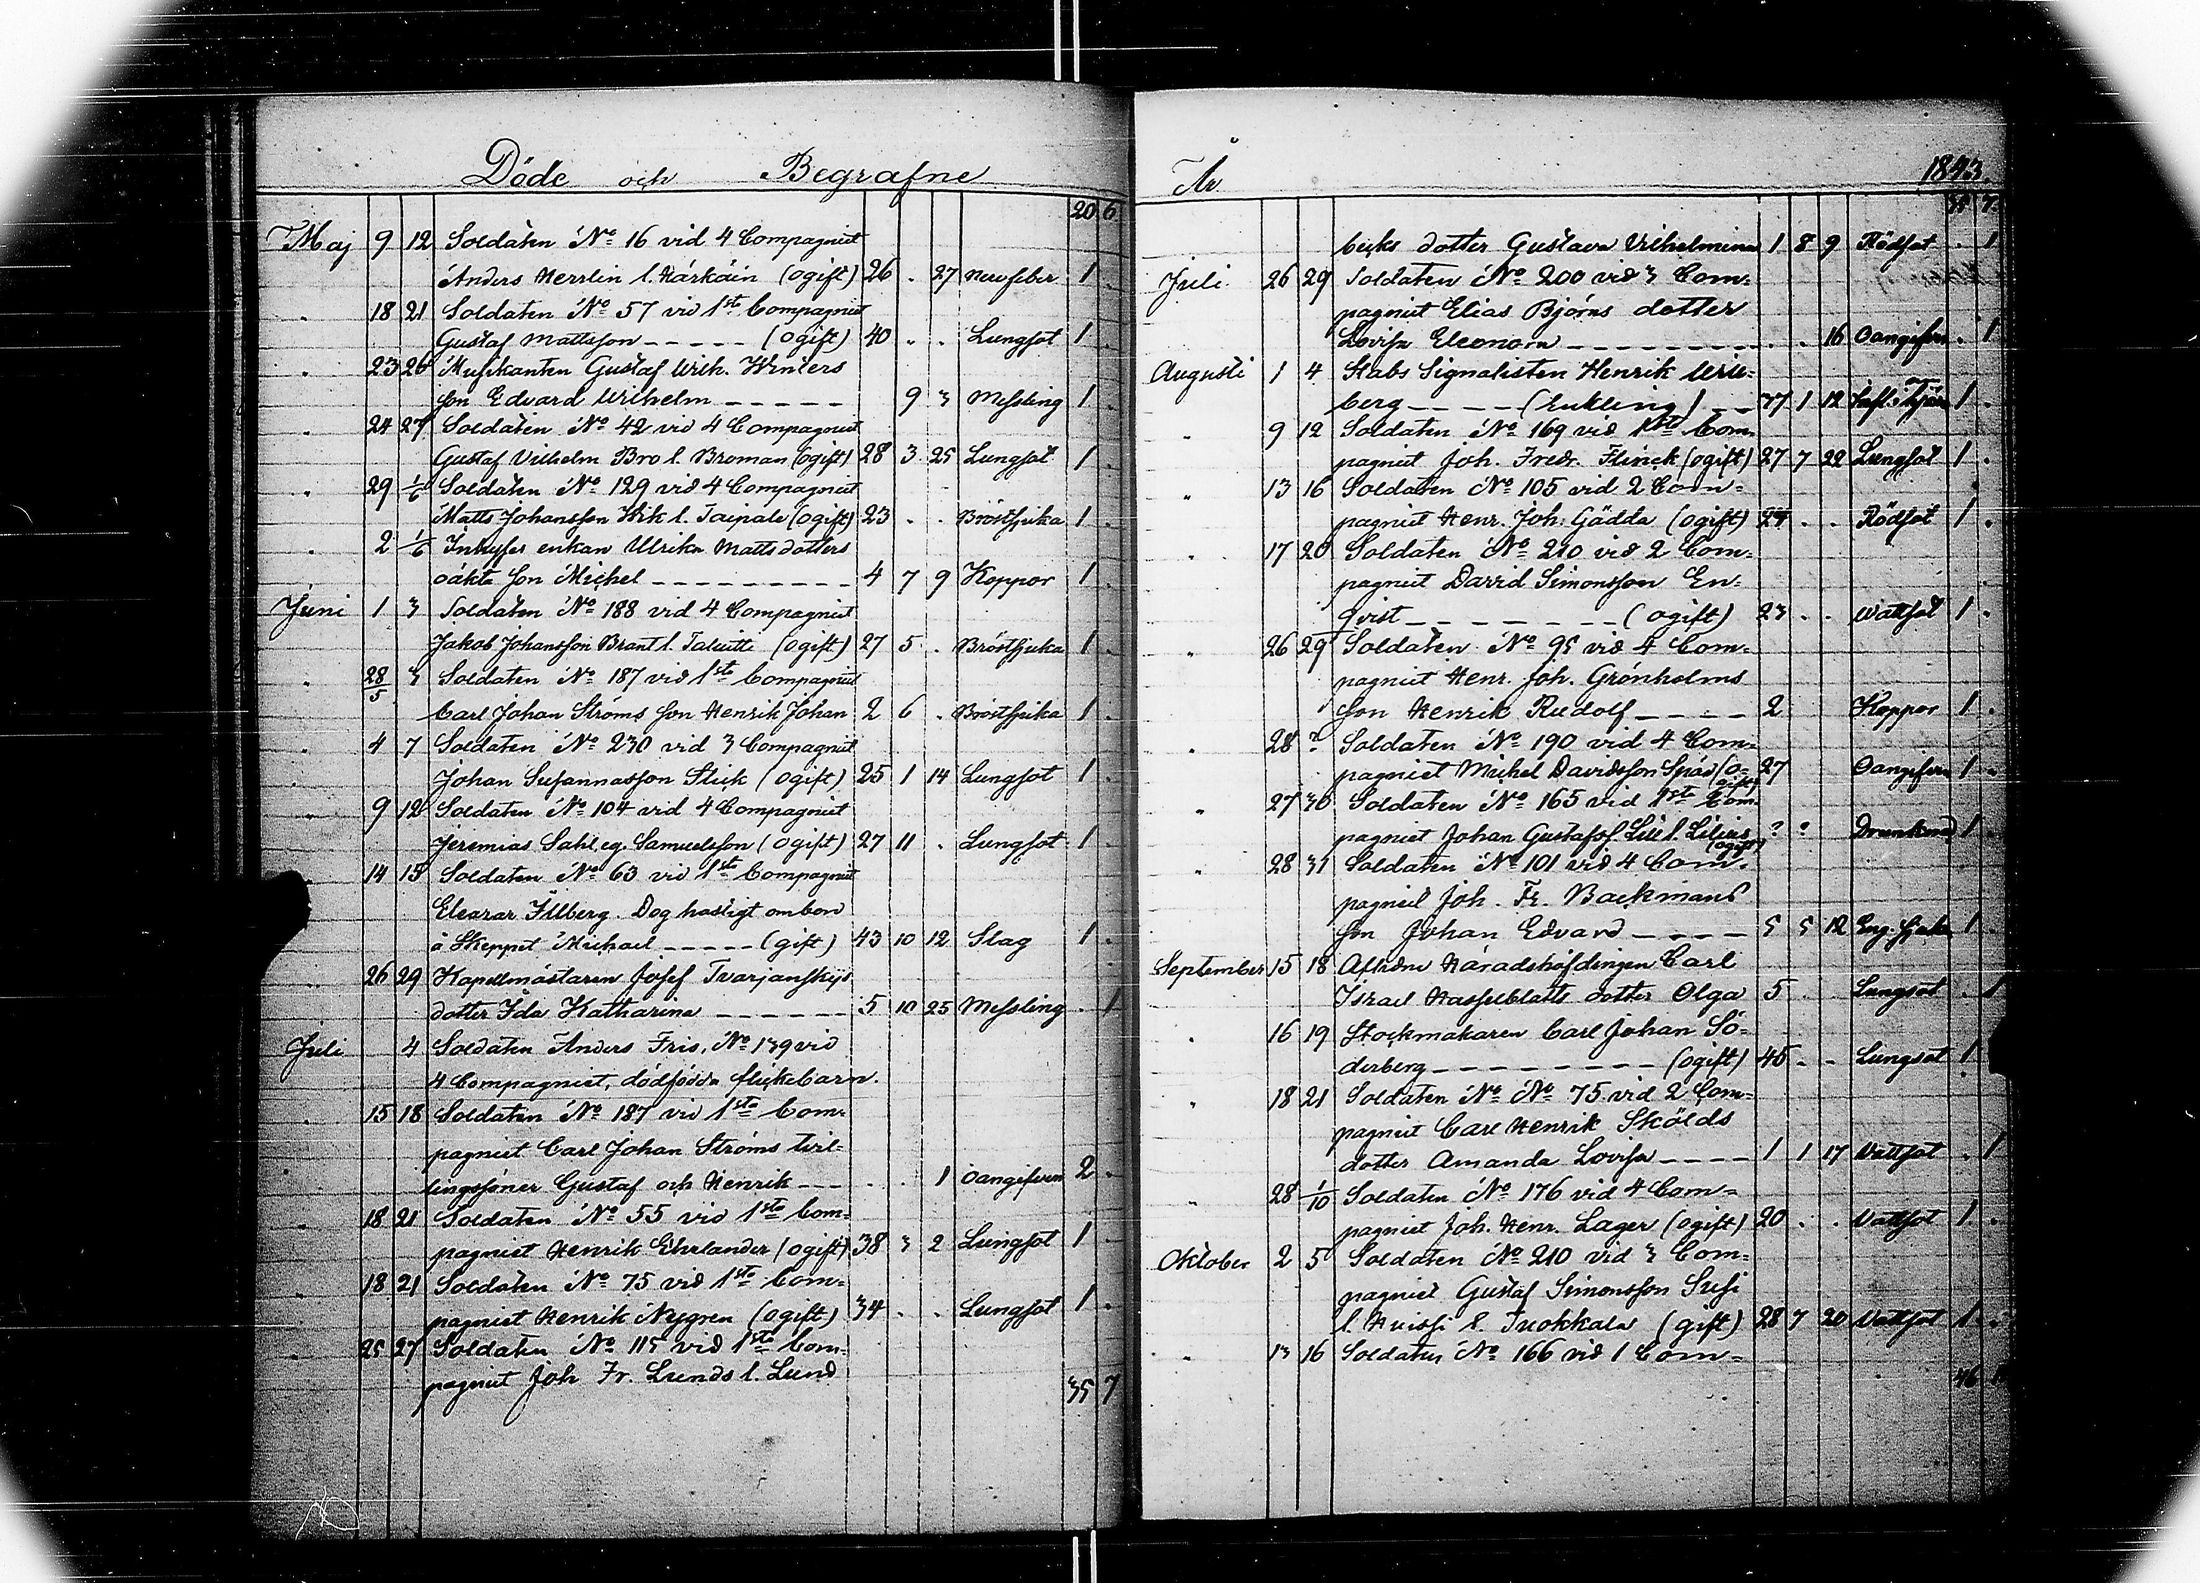 Döde och Begrafne
20 6
Maj 9 12 Soldaten No 16 vid 4 Compagniet
Anders Herrlin l. Härkäin (ogift) 26 . 27 Nervfeber 1 .
" 18 21 Soldaten No 57 vid 1sta Compagniet
Gustaf Mattsson - - - - - (ogift) 40 . . Lungsot 1 .
" 23 26 Musikanten Gustaf Wilh. Winters
son Edvard Wilhelm - - - - - 9 3 Messling 1 .
" 24 27 Soldaten No 42 vid 4 Compagniet
Gustaf Vilhelm Bro l. Broman (ogift) 28 3 25 Lungsot 1 .
" 29 1/6 Soldaten No 129 vid 4 Compagniet
Matts Johansson Wik l. Taipale (ogift) 23 . . Bröstsjuka 1 .
" 2 1/6 Inhyses enkan Ulrika Mattsdotters
oäkta son Michel - - - - - - - - - - 4 7 9 Koppor 1 .
Juni 1 3 Soldaten No 188 vid 4 Compagniet
Jakob Johansson Brant l. (ogift) 27 5 . Bröstsjuka 1 .
" 28/5 3 Soldaten No 187 vid 1sta Compagniet
Carl Johan Ströms son Henrik Johan 2 6 . Bröstsjuka 1 .
" 4 7 Soldaten No 230 vid 3 Compagniet
Johan Susannasson Stick (ogift) 25 1 14 Lungsot 1 .
" 9 12 Soldaten No 104 vid 4 Compagniet
Jeremias Sahl eg. Samuelsson (ogift) 27 11 . Lungsot 1
" 14 15 Soldaten No 63 vid 1sta Compagniet
Eleazar Illberg. Dog hastigt ombord
å Skeppet Michael - - - - - (gift) 43 10 12 Slag 1 .
" 26 29 Kapellmästaren Josef Tvarjanskijs
dotter Ida Katharina - - - - - - - 5 10 25 Messling . 1
Juli 4 Soldaten Anders Fris, No 139 vid
4 Compagniet, dödfödda flickebarn.
15 18 Soldaten No 187 vid 1sta Com-
pagniet Carl Johan Ströms tvil-
lingsöner Gustaf och Henrik - - - . . 1 Oangifven 2 .
" 18 21 Soldaten No 55 vid 1sta Com-
pagniet Henrik Ehrlander (ogift) 38 3 2 Lungsot 1 .
" 18 21 Soldaten No 75 vid 1sta Com-
pagniet Henrik Nygren (ogift) 34 . . Lungsot 1 .
" 25 27 Soldaten No 115 vid 1sta Com-
pagniet Joh Fr. Lunds l. Lund
35 7
År 1843.
35 7.
becks dotter Gustava Vilhelmina 1 8 9 Rödsot . 1
Juli 26 29 Soldaten No 200 vid 3 Com-
pagniet Elias Björns dotter
Lovisa Eleonora - - - - - - - - - . . 16 Oangifven . 1
Augusti 1 4 Stabs Signalisten Henrik
berg - - - - (Enkling) - - 37 1 12 1
" 9 12 Soldaten No 169 vid 1sta Com-
pagniet Joh. Fredr. Flinck (ogift) 27 7 22 Lungsot 1 .
" 13 16 Soldaten No 105 vid 2 Com-
pagniet Henr. Joh. Gädda (ogift) 24 . . Rödsot 1 .
" 17 20 Soldaten No 210 vid 2 Com-
pagniet David Simonsson En-
qvist - - - - - - - - (ogift) 23 . . Vattsot 1 .
" 26 29 Soldaten No 95 vid 4 Com-
pagniet Henr. Joh. Grönholms
son Henrik Rudolf - - - - 2 Koppor 1 .
" 28 ? Soldaten No 190 vid 4 Com-
pagniet Michel Davidsson Späd (o- 27 Oangifven 1 .
gift)
" 27 30 Soldaten No 165 vid 1sta Com-
pagniet Johan Gustafss. Lill l. Lilius ? ? Drunknad 1 .
(ogift)
" 28 31 Soldaten No 101 vid 4 Com-
pagniet Joh. Fr. Backmans
son Johan Edvard - - - - 5 5 12 Eng. Sjuka 1 .
September 15 18 Aflidne Häradshöfdingen Carl
Israel Hasselblatts dotter Olga 5 . Lungsot . 1
" 16 19 Stockmakaren Carl Johan Sö-
derberg - - - - - - - - - (ogift) 45 - - Lungsot 1
" 18 21 Soldaten No No 75 vid 2 Com-
pagniet Carl Henrik Skölds
dotter Amanda Lovisa - - - - 1 1 17 Vattsot . 1
" 28 1/10 Soldaten No 176 vid 4 Com-
pagniet Joh. Henr. Lager (ogift) 20 . . Vattsot 1 .
Oktober 2 5 Soldaten No 210 vid 3 Com-
pagniet Gustaf Simonsson Susi
l. Huissi l. Tuokkala (gift) 28 7 20 Vattsot 1 .
" 13 16 Soldaten No 166 vid 1 Com-
46